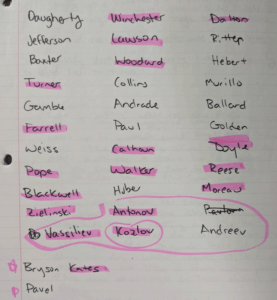 Daugherty Winchester Dalton
Jefferson Lawson Potter
Baxter Woodard Hebert
Turner Collins Murillo
Gamble Andrade Ballard
Farrell Paul Golden
Weiss Calhoun Doyle
Pope Walker Reese
Blackwell Huber Moreau
Zielinski Antonov
Vassiliev Kozlov Andreev
Bryson Kates
Pavel